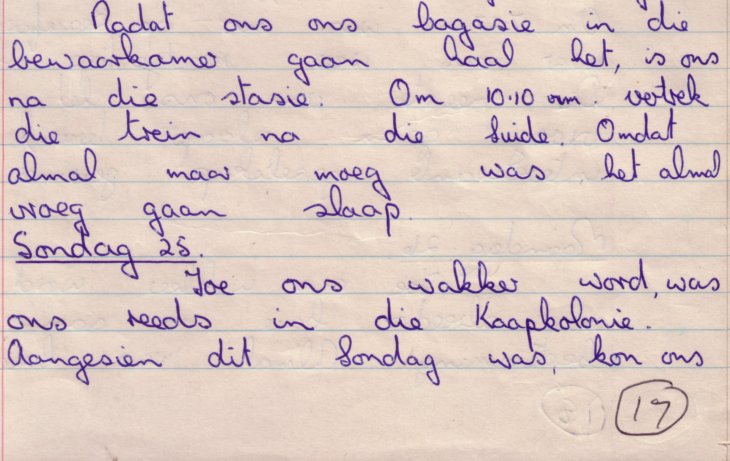 Nadat ons ons bagasie in die
bewaarkamer gaan haal het, is ons
na die stasie. Om 10.10 vm. vertrek
die trein na die Suide. Omdat
almal maar moeg was het almal
vroeg gaan slaap.
Sondag 25.
Toe ons wakker word, was
ons reeds in die Kaapkolonie.
Aangesien dit Sondag was, kon ons
17